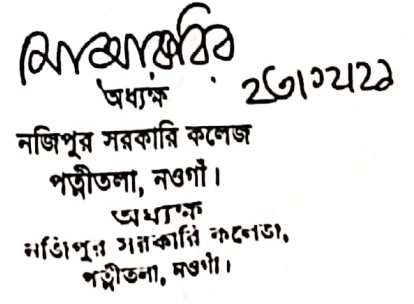 অধ্যক্ষ
নজিপুর সরকারি কলেজ
পত্নীতলা, নওগাঁ।
অধ্যক্ষ
নজিপুর সরকারি কলেজ,
পত্নীতলা, নওগাঁ।